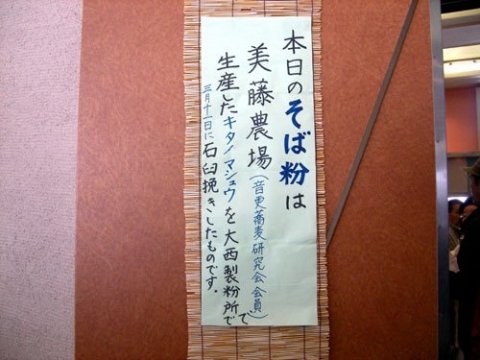 本日のそば粉は
美藤農場(音更蕎麦研究会会員)で
生産したキタノマシュウを大西製粉所で
三月十一日に石臼挽きしたものです。